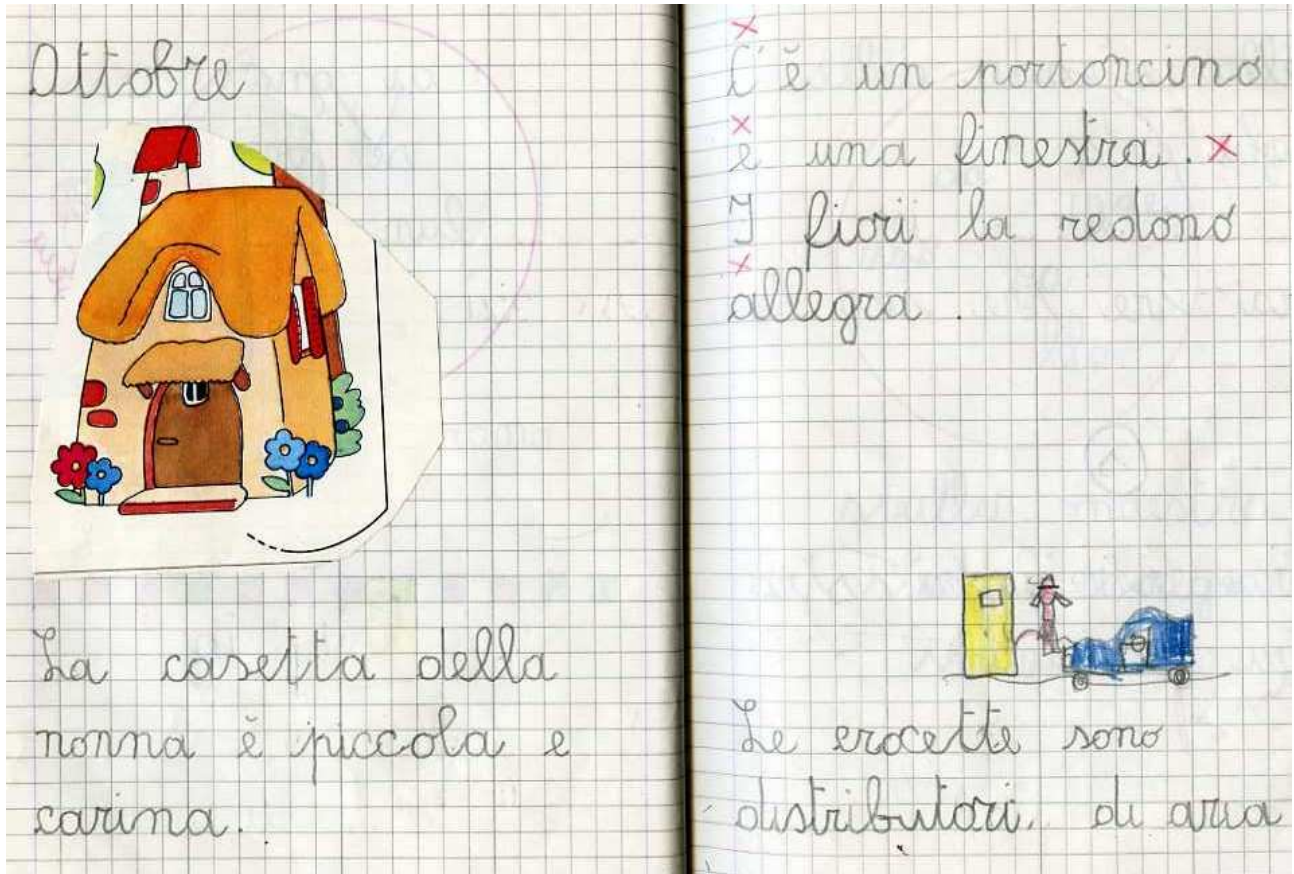 Ottobre
La casetta della
nonna è piccola e
carina.
C'è un portoncino
e una finestra.
I fiori la redono
allegra.
Le crocette sono
distributori di aria